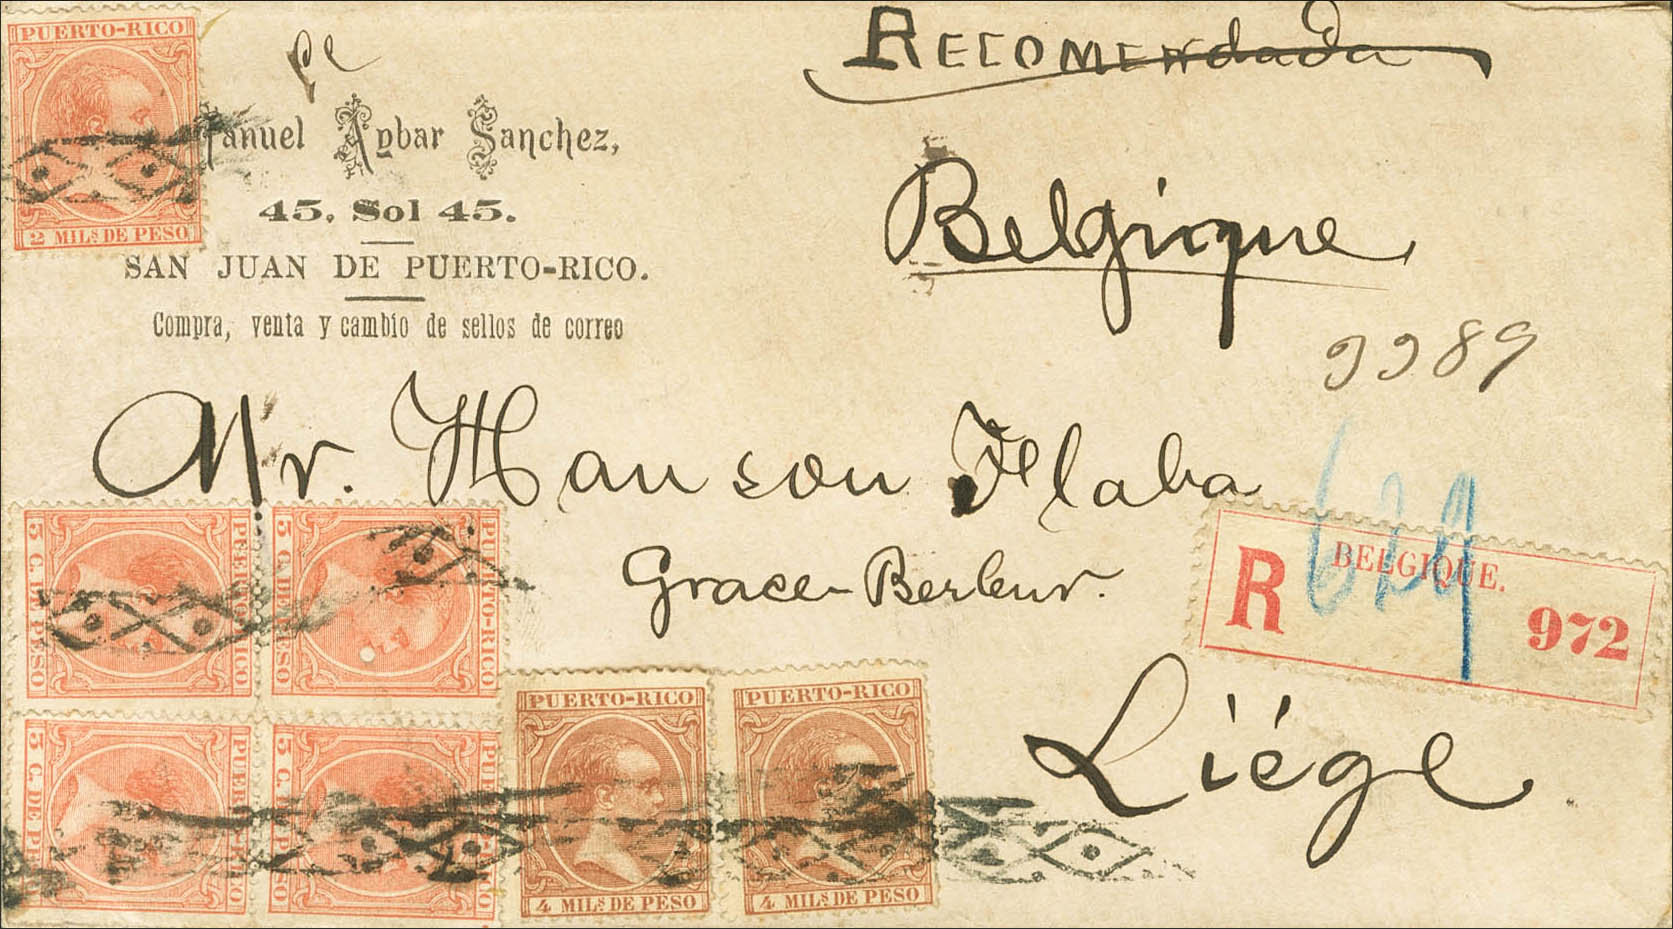 PUERTO-RICO
2 MILS DE PESO
Recomendada
Manuel Aybar Sanchez,
45, Sol 45.
SAN JUAN DE PUERTO-RICO.
Compra, venta y cambio de sellos de correo
Belgique
9989
Mr. Hanson Flaba
Grace-Berleur.
Liége
R BELGIQUE.
972
629
PUERTO-RICO
5 C. DE PESO
PUERTO-RICO
5 C. DE PESO
PUERTO-RICO
5 C. DE PESO
PUERTO-RICO
5 C. DE PESO
PUERTO-RICO
4 MILS DE PESO
PUERTO-RICO
4 MILS DE PESO